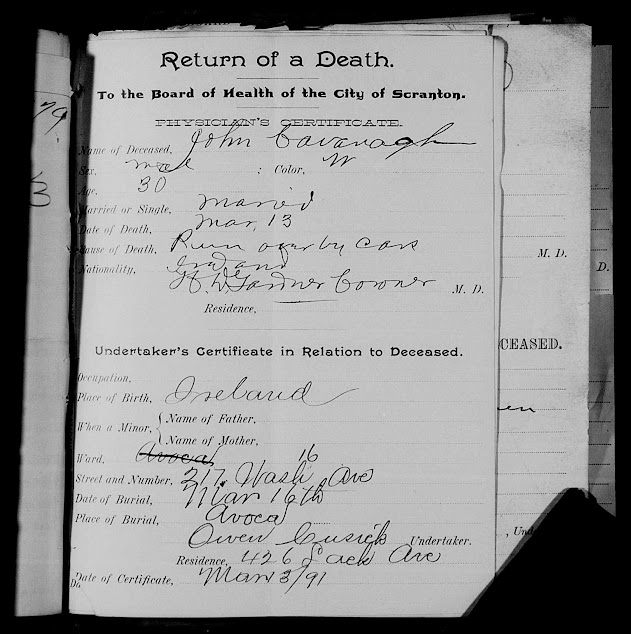 79
Return of a Death.
To the Board of Health of the City of Scranton.
PHYSICIAN'S CERTIFICATE.
Name of Deceased, John Cavanagh
Sex, male : Color, W
Age, 30
Married or Single, Married
Date of Death, Mar, 13
Cause of Death, Run over by cars
Nationality, Ireland
Gardner Coroner M. D.
Residence,
Undertaker's Certificate in Relation to Deceased.
Occupation,
Place of Birth, Ireland
When a Minor, { Name of Father,
Name of Mother,
Ward, Avoca 16
Street and Number, 217 Wash Ave
Date of Burial, Mar 16th
Place of Burial, Avoca
Owen Cusick Undertaker.
Residence, 426 Ave
Date of Certificate, Mar 3/91
M. D.
D.
CEASED.
en
, Und